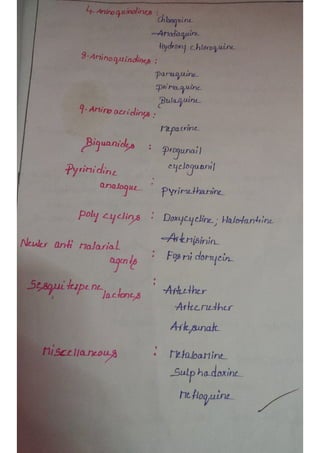 4. Aminoquinolines :
Chloroquine
Amodiaquine
Hydroxy chloroquine
8. Aminoquinolines :
pamaquine
primaquine
Bulaquine
9. Amino acridines :
Mepacrine
Biguanides : proguanil
cycloguanil
Pyrimidine
analogue : pyrimethamine
poly cyclins : Doxycycline ; Halofantrine
Artemisinin
Newer anti malarial
agents : Fosmidomycin
Sesquiterpene
lactones : Arteether
Artemether
Artesunate
Miscellaneous :
Sulphadoxine
Mefloquine